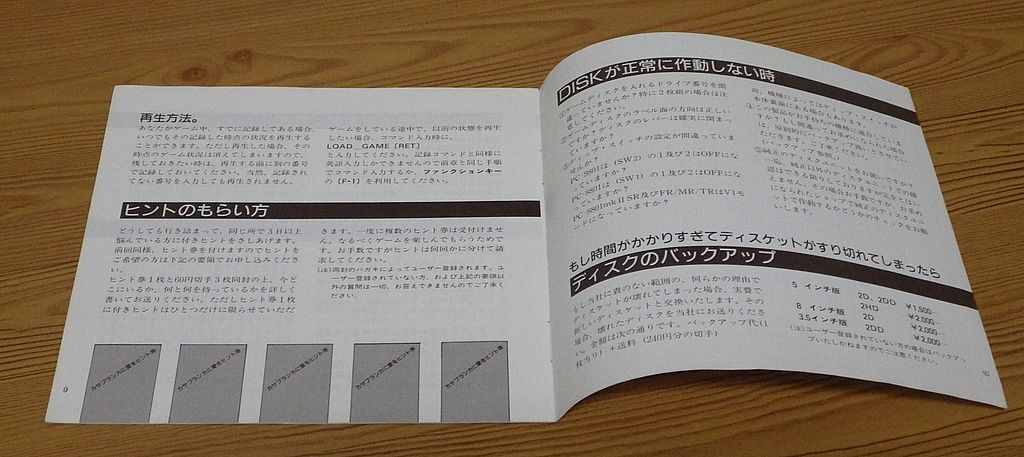 再生方法。
あなたがゲーム中、すでに記録してある場合、
いつでもその記録した時点の状況を再生する
ことができます。ただし再生した場合、その
時点のゲーム状況は消えてしまいますので、
残しておきたい時は、再生する前に別の番号
で記録しておいてください。当然、記録され
てない番号を入力しても再生されません。
ゲームをしている途中で、以前の状態を再生
したい場合、コマンド入力時に、
LOAD__GAME (RET)
と入力してください。記録コマンドと同様に
英語入力しかできませんので前章と同じ手順
でコマンド入力するか、ファンクションキー
の[F・1]を利用してください。
ヒントのもらい方
どうしても行き詰まって、同じ所で3日以上
悩んでいる方に付きヒントをさしあげます。
前回同様、ヒント券を付けますのでヒントを
ご希望の方は下記の要領でお申し込みくださ
い。
ヒント券1枚と60円切手3枚同封の上、今ど
こにいるか、何と何を持っているかを詳しく
書いてお送りください。ただしヒント券1枚
に付きヒントはひとつだけに限らせていただ
きます。一度に複数のヒント券は受付けませ
ん。なるべくゲームを楽しんでもらうためで
す。お手数ですがヒントは何回かに分けて請
求してください。
(注)同封のハガキによってユーザー登録されます。ユ
ーザー登録されていない方、および上記の要領以
外の質問は一切、お答えできませんのでご了承く
ださい。
カサブランカに愛をヒント券
カサブランカに愛をヒント券
カサブランカに愛をヒント券
カサブランカに愛をヒント券
カサブランカに愛をヒント券
9
DISKが正常に作動しない時
ゲームディスクを入れるドライブ番号を間
違していませんか?特に2枚組の場合は注
ゲームディスクのラベル面の方向は正しい
ですか?ディスクのレバーは確実に閉まっ
ていますか?
ディップ・スイッチの設定が間違っていま
せんか?
PC-9801は(SW2)の1及び2はOFFにな
っていますか?
PC-8801は(SW1)の1及び2はOFFにな
っていますか?
PC 8801mkII SR及びFR/MR/TRはV1モ
ードになっていますか?
もし時間がかかりすぎてディスケットがすり切れてしまったら
ディスクのバックアップ
もし当社に責のない範囲の、何らかの理由で
ディスケットが壊れてしまった場合、実費で
新しいディスケットと交換いたします。その
場合、壊れたディスクを当社にお送りくださ
い。金額は次の通りです。バックアップ代(1
枚当り)+送料(240円分の切手)
5 インチ版 2D、2DD ¥1,500—
2HD ¥2,000—
8 インチ版 2D ¥2,000—
3.5インチ版 2DD ¥2,000—
(注)ユーザー登録されていない方の場合はバックアッ
プいたしかねますのでご注意ください。
10